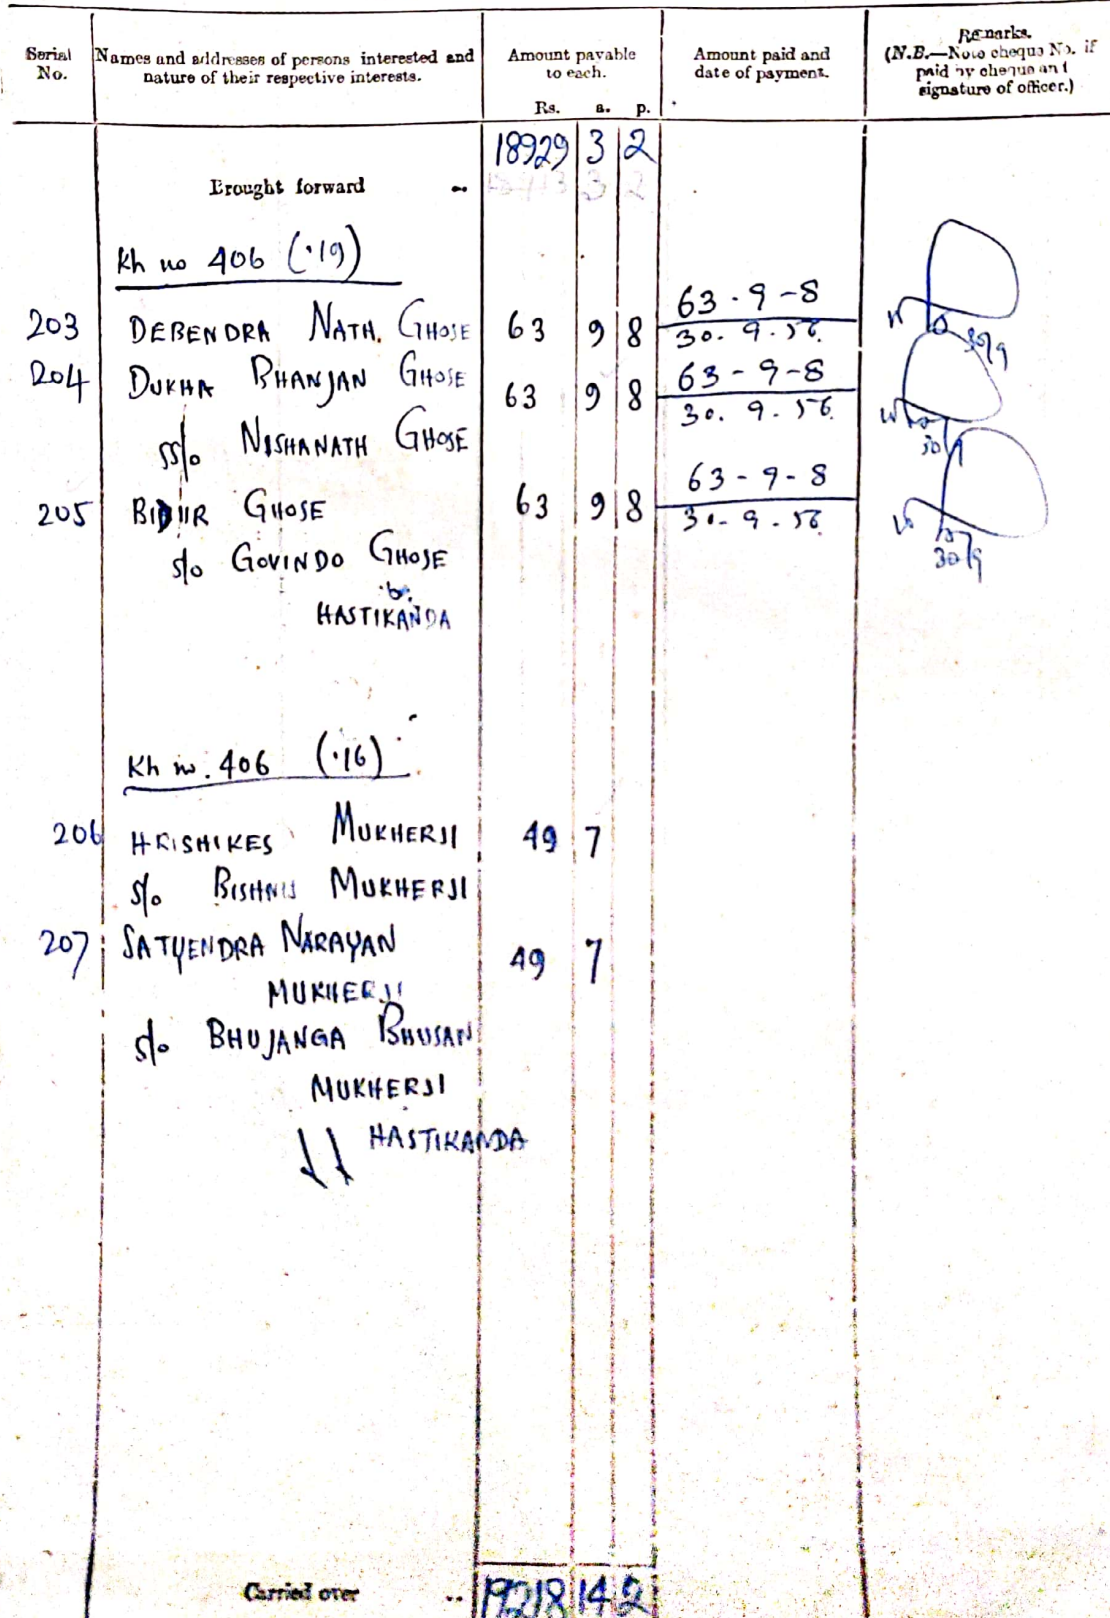 Serial No.
Names and addresses of persons interested and nature of their respective interests.
Amount payable to each.
Rs. a. p.
Amount paid and date of payment.
Remarks.
(N.B.—Note cheque No. if paid by cheque and signature of officer.)
18929 3 2
Brought forward ..
Kh no 406 (·19)
203 DEBENDRA NATH. GHOSE 63 9 8 63-9-8
30.9.56
30/9
204 DUKHA BHANJAN GHOSE 63 9 8 63-9-8
30.9.56
30/9
ss/o NISHANATH GHOSE
205 BIDUR GHOSE 63 9 8 63-9-8
30-9-56
30/9
s/o GOVINDO GHOSE
HASTIKANDA
Kh no. 406 (·16)
206 HRISHIKES MUKHERJI 49 7
s/o BISHNU MUKHERJI
207 SATYENDRA NARAYAN 49 7
MUKHERJI
s/o BHUJANGA BHUSAN
MUKHERJI
HASTIKANDA
Carried over .. 19218 14 2